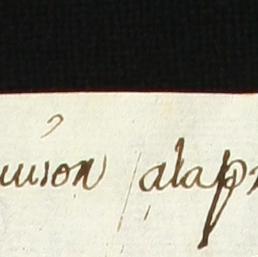 uison alap